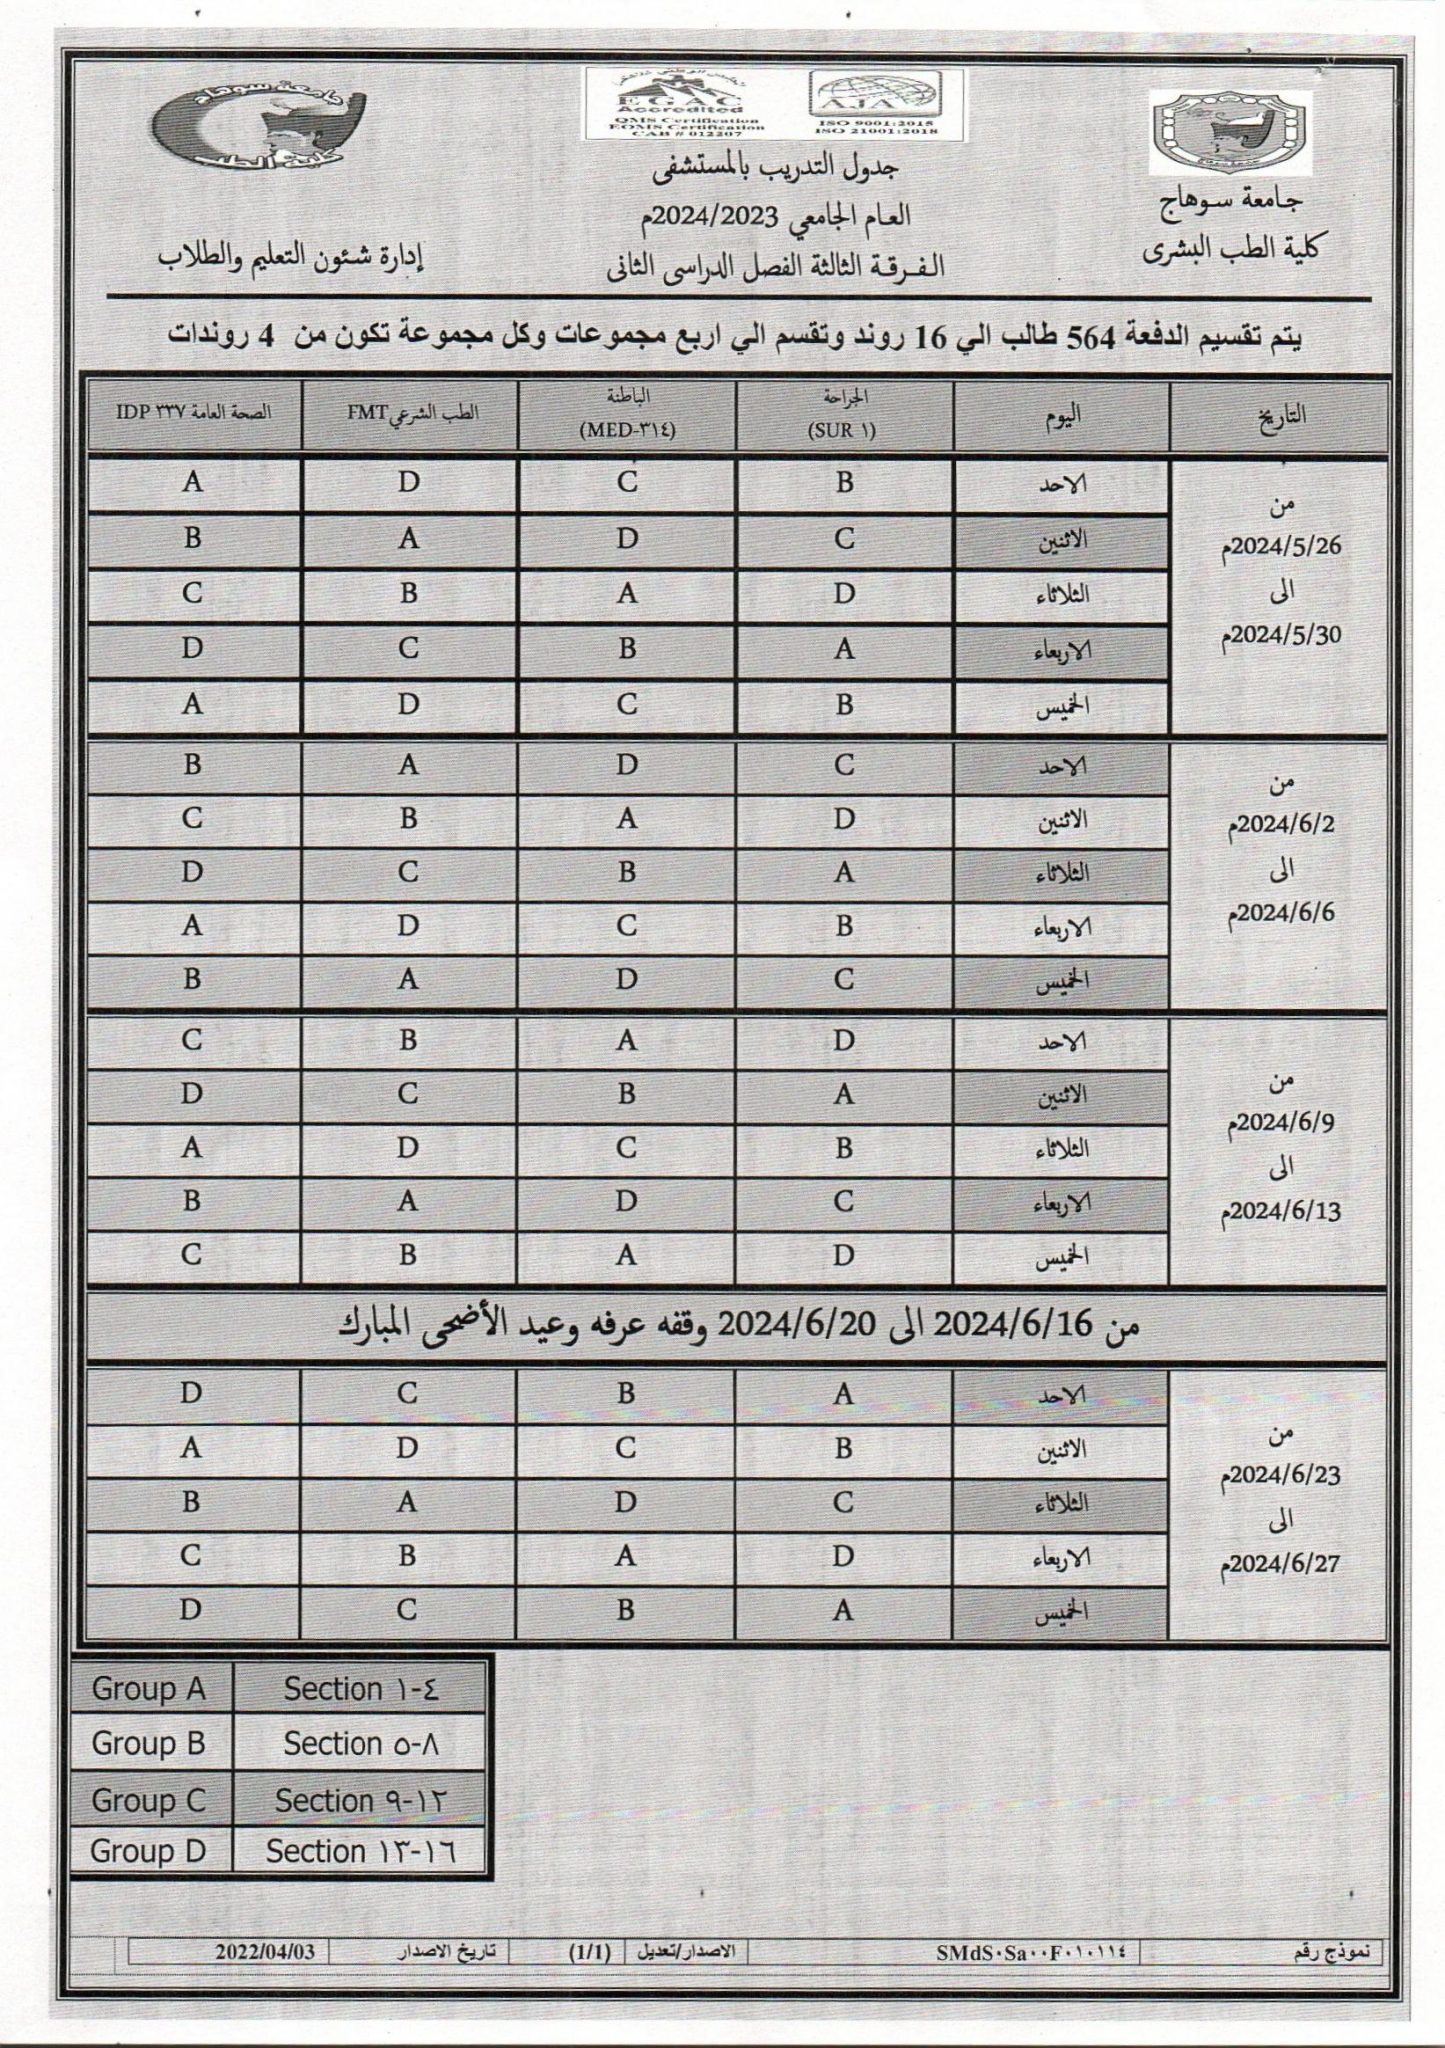 جامعة سوهاج
كلية الطب
EGAC
Accredited
QMS Certification
EOMS Certification
CAB # 012207
AJA
ISO 9001:2015
ISO 21001:2018
جامعة سوهاج
كلية الطب البشرى
جدول التدريب بالمستشفى
العام الجامعي 2024/2023م
الفرقة الثالثة الفصل الدراسى الثانى
إدارة شئون التعليم والطلاب
يتم تقسيم الدفعة 564 طالب الي 16 روند وتقسم الي اربع مجموعات وكل مجموعة تكون من 4 روندات
التاريخ اليوم الجراحة (SUR ١) الباطنة (MED-٣١٤) الطب الشرعي FMT الصحة العامة IDP ٣٣٧
من 2024/5/26م الى 2024/5/30م
الاحد B C D A
الاثنين C D A B
الثلاثاء D A B C
الاربعاء A B C D
الخميس B C D A
من 2024/6/2م الى 2024/6/6م
الاحد C D A B
الاثنين D A B C
الثلاثاء A B C D
الاربعاء B C D A
الخميس C D A B
من 2024/6/9م الى 2024/6/13م
الاحد D A B C
الاثنين A B C D
الثلاثاء B C D A
الاربعاء C D A B
الخميس D A B C
من 2024/6/16 الى 2024/6/20 وقفه عرفه وعيد الأضحى المبارك
من 2024/6/23م الى 2024/6/27م
الاحد A B C D
الاثنين B C D A
الثلاثاء C D A B
الاربعاء D A B C
الخميس A B C D
Group A Section ١-٤
Group B Section ٥-٨
Group C Section ٩-١٢
Group D Section ١٣-١٦
نموذج رقم SMdS٠Sa٠٠F٠١٠١١٤ الاصدار/تعديل (1/1) تاريخ الاصدار 2022/04/03